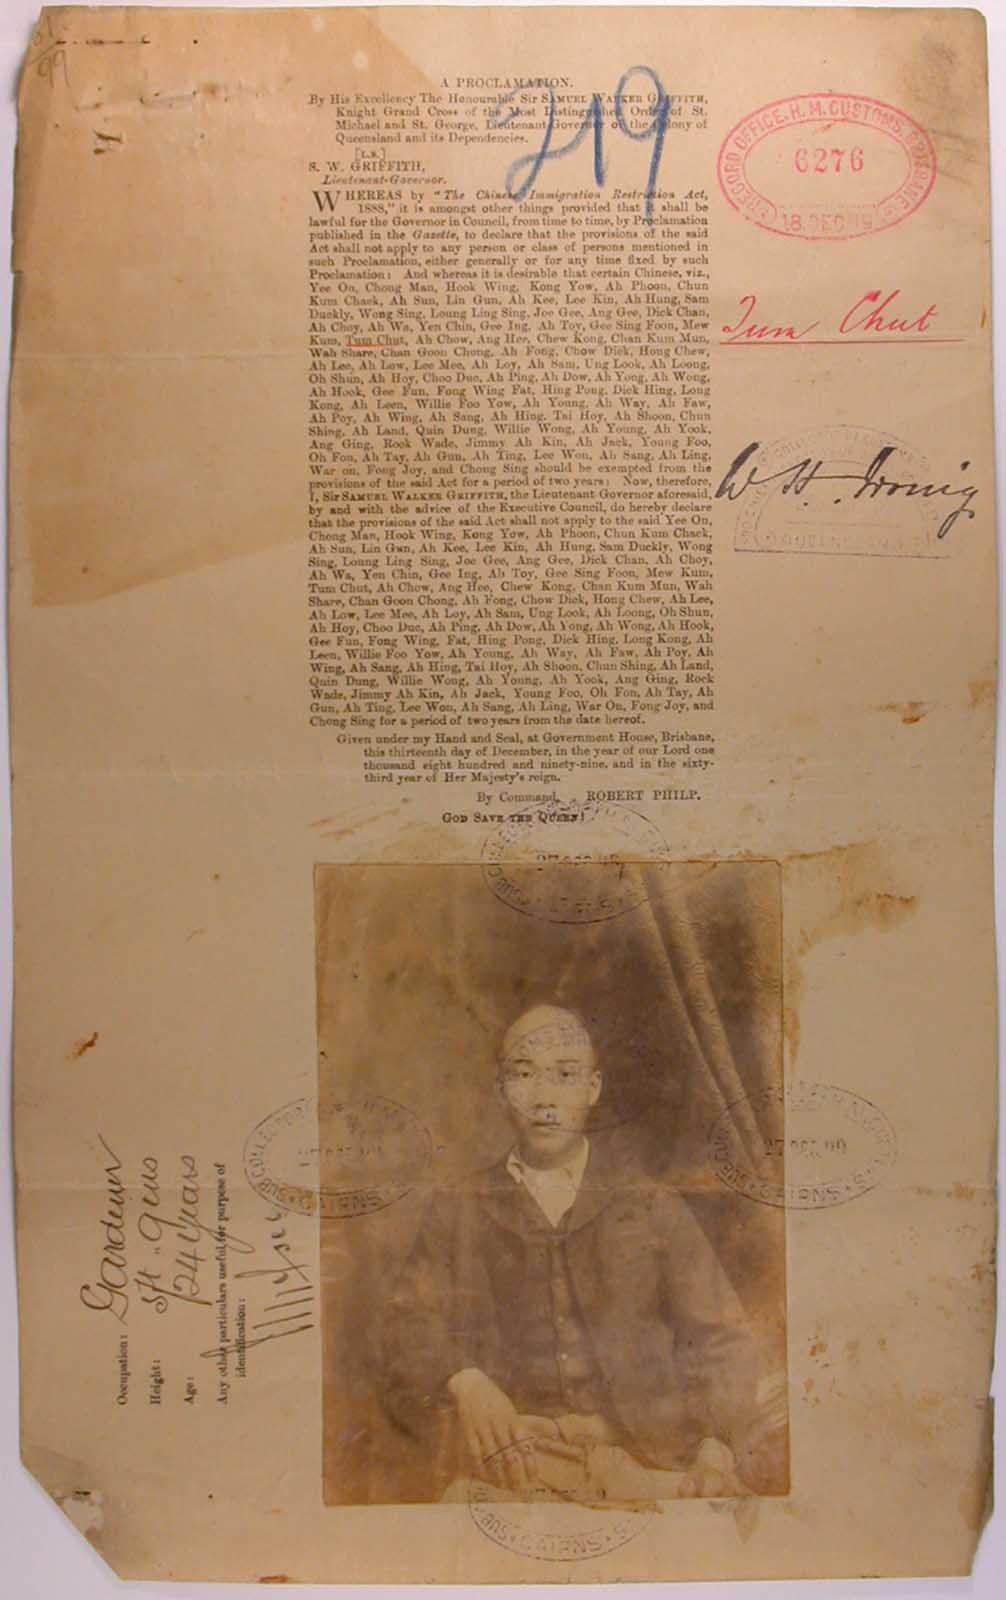 91
99
219
A PROCLAMATION.
By His Excellency The Honourable Sir SAMUEL WALKER GRIFFITH,
Knight Grand Cross of the Most Distinguished Order of St.
Michael and St. George, Lieutenant-Governor of the Colony of
Queensland and its Dependencies.
[L.S.]
S. W. GRIFFITH,
Lieutenant-Governor.
WHEREAS by "The Chinese Immigration Restriction Act,
1888," it is amongst other things provided that it shall be
lawful for the Governor in Council, from time to time, by Proclamation
published in the Gazette, to declare that the provisions of the said
Act shall not apply to any person or class of persons mentioned in
such Proclamation, either generally or for any time fixed by such
Proclamation: And whereas it is desirable that certain Chinese, viz.,
Yee On, Chong Man, Hook Wing, Kong Yow, Ah Phoon, Chun
Kum Chack, Ah Sun, Lin Gun, Ah Kee, Lee Kin, Ah Hung, Sam
Duckly, Wong Sing, Loung Ling Sing, Joe Gee, Ang Gee, Dick Chan,
Ah Choy, Ah Wa, Yen Chin, Gee Ing, Ah Toy, Gee Sing Foon, Mew
Kum, Tum Chut, Ah Chow, Ang Hee, Chew Kong, Chan Kum Mun,
Wah Share, Chan Goon Chong, Ah Fong, Chow Dick, Hong Chew,
Ah Lee, Ah Low, Lee Mee, Ah Loy, Ah Sam, Ung Look, Ah Loong,
Oh Shun, Ah Hoy, Choo Duc, Ah Ping, Ah Dow, Ah Yong, Ah Wong,
Ah Hook, Gee Fun, Fong Wing Fat, Hing Pong, Dick Hing, Long
Kong, Ah Leen, Willie Foo Yow, Ah Young, Ah Way, Ah Faw,
Ah Poy, Ah Wing, Ah Sang, Ah Hing, Tai Hoy, Ah Shoon, Chun
Shing, Ah Land, Quin Dung, Willie Wong, Ah Young, Ah Yook,
Ang Ging, Rock Wade, Jimmy Ah Kin, Ah Jack, Young Foo,
Oh Fon, Ah Tay, Ah Gun, Ah Ting, Lee Won, Ah Sang, Ah Ling,
War on, Fong Joy, and Chong Sing should be exempted from the
provisions of the said Act for a period of two years: Now, therefore,
I, Sir SAMUEL WALKER GRIFFITH, the Lieutenant-Governor aforesaid,
by and with the advice of the Executive Council, do hereby declare
that the provisions of the said Act shall not apply to the said Yee On,
Chong Man, Hook Wing, Kong Yow, Ah Phoon, Chun Kum Chack,
Ah Sun, Lin Gun, Ah Kee, Lee Kin, Ah Hung, Sam Duckly, Wong
Sing, Loung Ling Sing, Joe Gee, Ang Gee, Dick Chan, Ah Choy,
Ah Wa, Yen Chin, Gee Ing, Ah Toy, Gee Sing Foon, Mew Kum,
Tum Chut, Ah Chow, Ang Hee, Chew Kong, Chan Kum Mun, Wah
Share, Chan Goon Chong, Ah Fong, Chow Dick, Hong Chew, Ah Lee,
Ah Low, Lee Mee, Ah Loy, Ah Sam, Ung Look, Ah Loong, Oh Shun,
Ah Hoy, Choo Duc, Ah Ping, Ah Dow, Ah Yong, Ah Wong, Ah Hook,
Gee Fun, Fong Wing, Fat, Hing Pong, Dick Hing, Long Kong, Ah
Leen, Willie Foo Yow, Ah Young, Ah Way, Ah Faw, Ah Poy, Ah
Wing, Ah Sang, Ah Hing, Tai Hoy, Ah Shoon, Chun Shing, Ah Land,
Quin Dung, Willie Wong, Ah Young, Ah Yook, Ang Ging, Rock
Wade, Jimmy Ah Kin, Ah Jack, Young Foo, Oh Fon, Ah Tay, Ah
Gun, Ah Ting, Lee Won, Ah Sang, Ah Ling, War On, Fong Joy, and
Chong Sing for a period of two years from the date hereof.
Given under my Hand and Seal, at Government House, Brisbane,
this thirteenth day of December, in the year of our Lord one
thousand eight hundred and ninety-nine, and in the sixty-
third year of Her Majesty's reign.
By Command, ROBERT PHILP.
GOD SAVE THE QUEEN!
RECORD OFFICE. H. M. CUSTOMS. BRISBANE
6276
18. DEC 99
Tum Chut
W H. Irving
QUEENSLAND
SUB COLLECTOR H.M. CUSTOMS
27 DEC 99
CAIRNS
SUB COLLECTOR
CAIRNS
SUB COLLECTOR H.M. CUSTOMS
27 DEC 99
CAIRNS
SUB
CAIRNS
Occupation: Gardener
Height: 5ft 9ins
Age: 24 Years
Any other particulars useful for purpose of
identification: